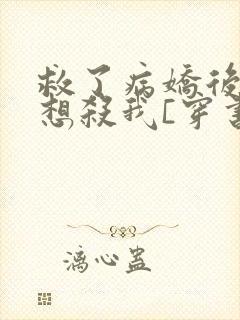 救了病嬌後
想殺我[穿書
漓心蠱